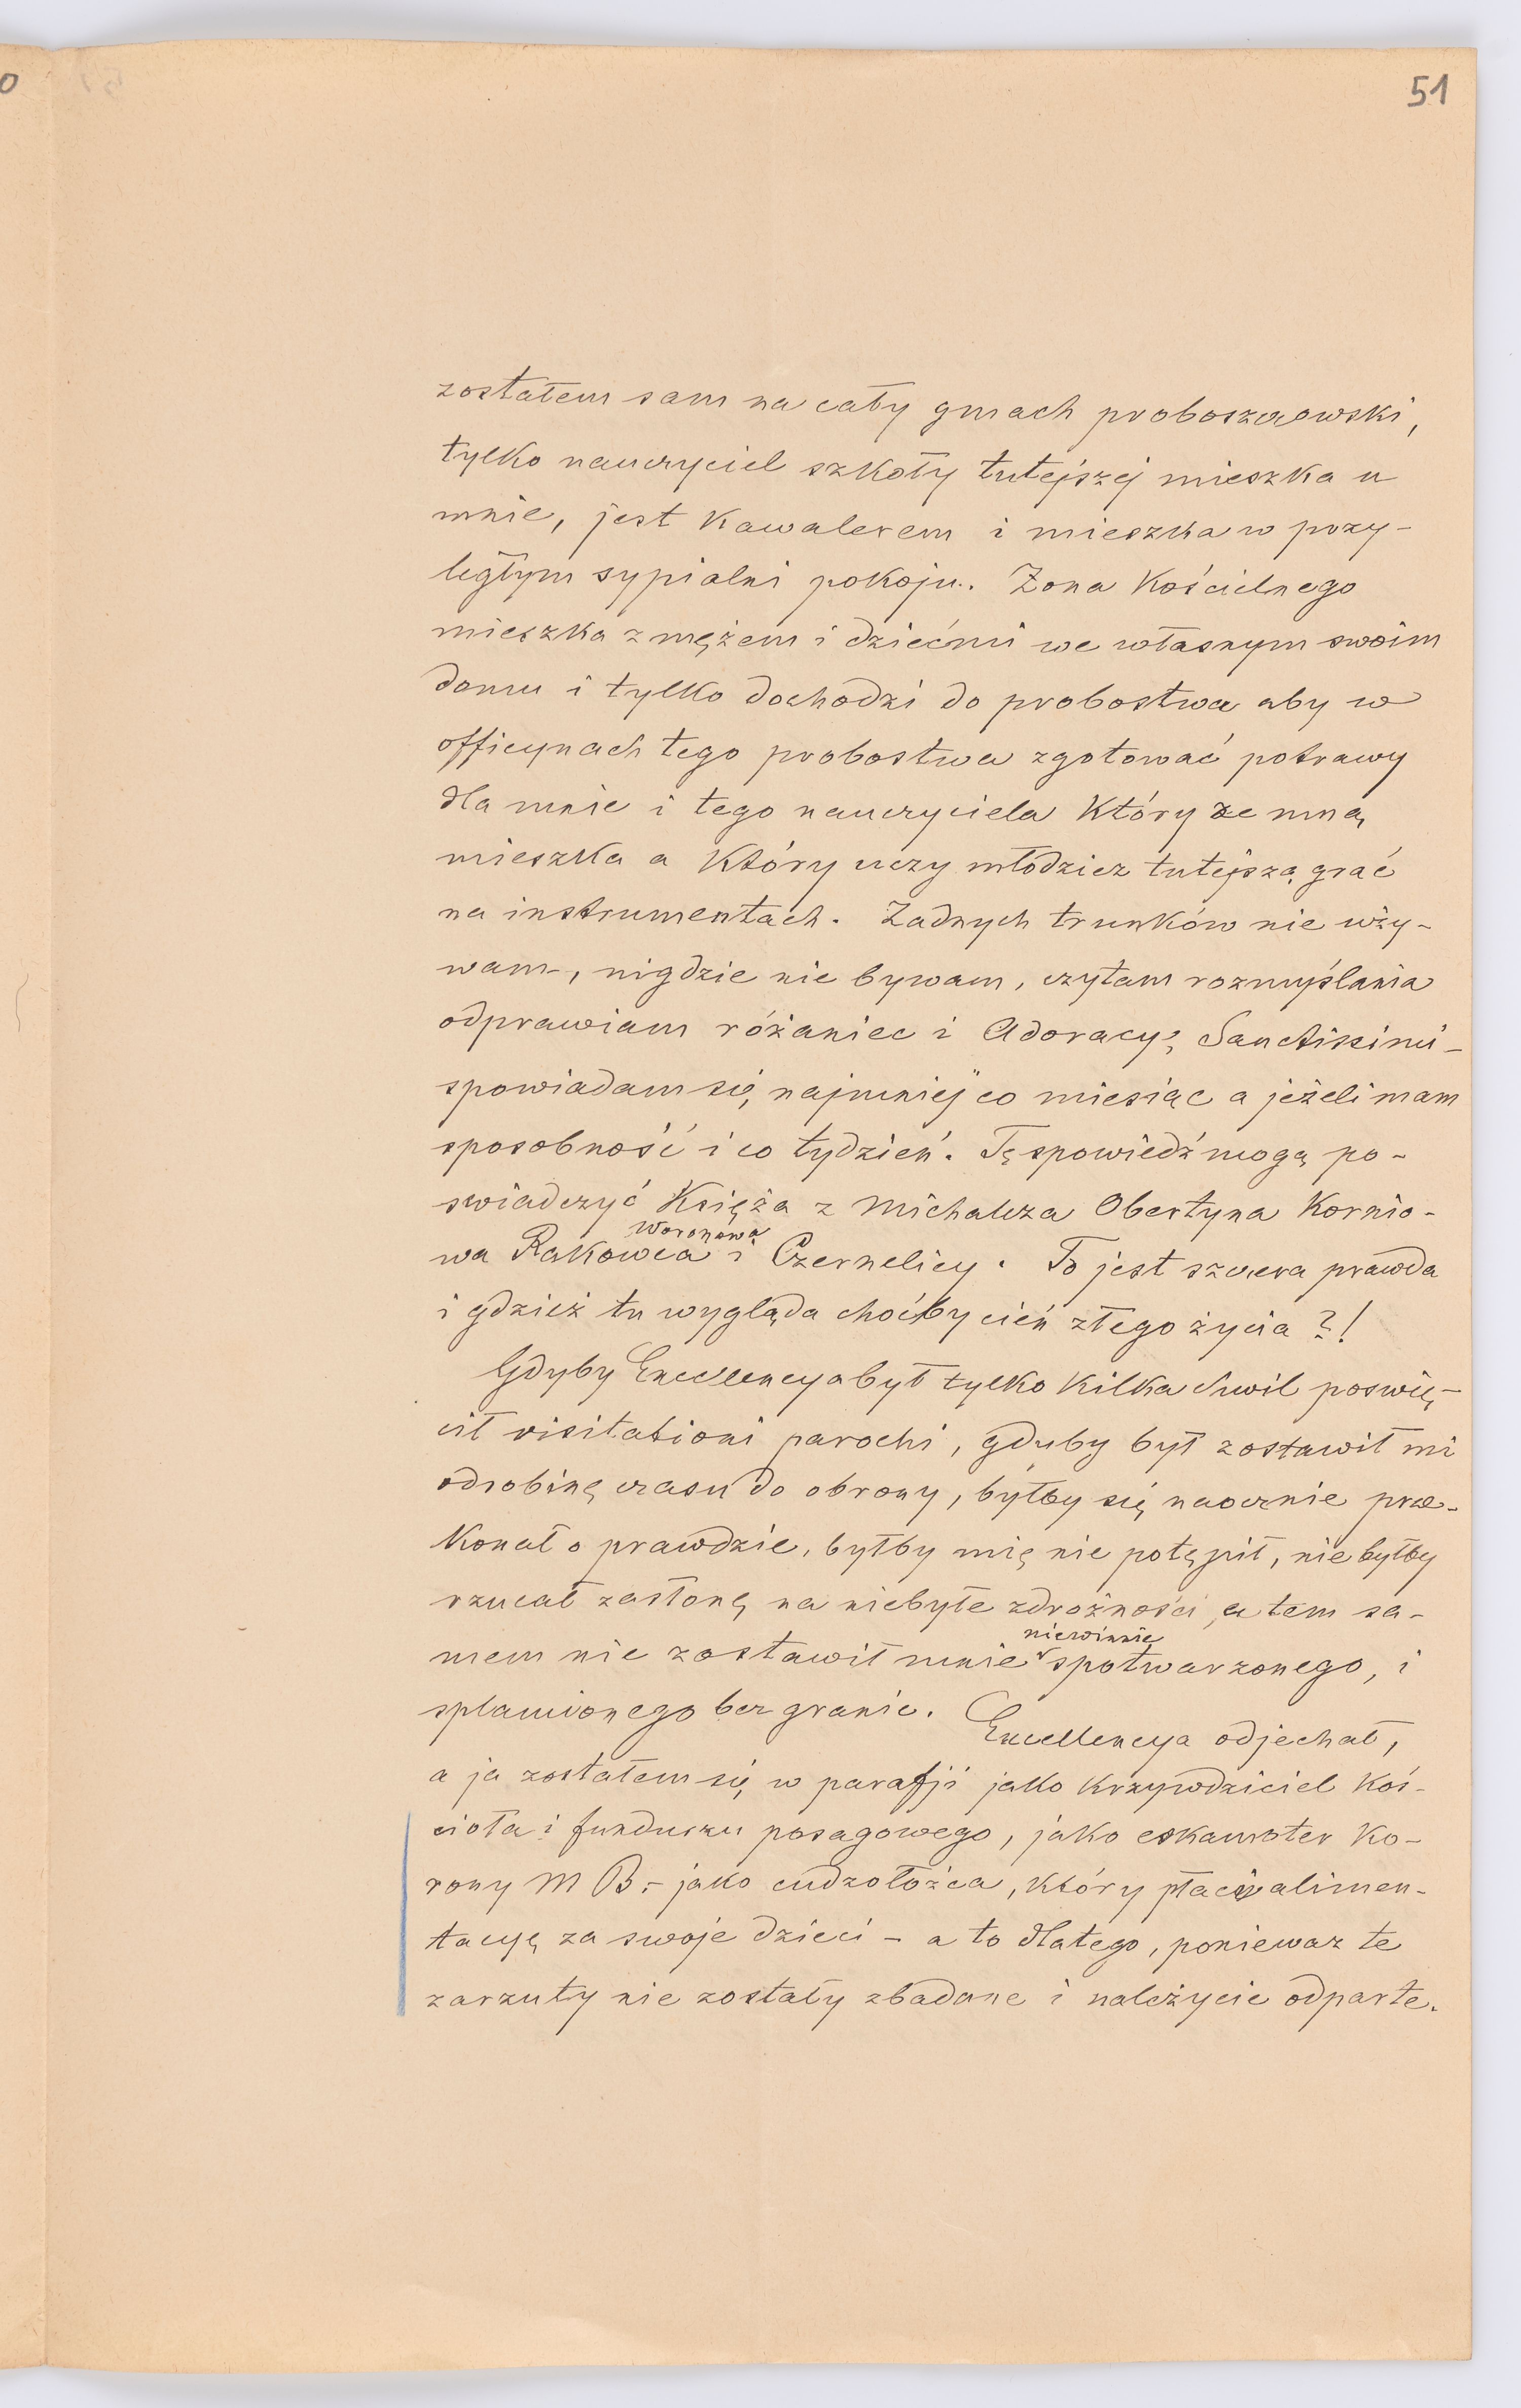 51
zostałem sam na cały gmach proboszczowski,
tylko nauczyciel szkoły tutejszej mieszka u
mnie, jest kawalerem i mieszka w przy-
ległym sypialni pokoju. Żona kościelnego
mieszka z mężem i dziećmi we własnym swoim
domu i tylko dochodzi do probostwa aby w
officynach tego probostwa zgotować potrawy
dla mnie i tego nauczyciela który ze mną
mieszka a który uczy młodzież tutejszą grać
na instrumentach. Żadnych trunków nie uży-
wam, nigdzie nie bywam, czytam rozmyślania
odprawiam różaniec i Adoracyę Sanctissimi -
spowiadam się najmniej co miesiąc a jeżeli mam
sposobność i co tydzień. Tę spowiedź mogą po-
swiadczyć Księża z Michalcza Obertyna Kornio-
wa Rakowca Woronowa i Czernelicy. To jest szczera prawda
i gdzież tu wygląda choćby cień złego życia ?!
Gdyby Excellencya był tylko kilka chwil poswię-
cił visitationi parochi, gdyby był zostawił mi
odrobinę czasu do obrony, byłby się naocznie prze-
konał o prawdzie, byłby mię nie potępił, nie byłby
rzucał zasłonę na niebyłe zdrożności, a tem sa-
mem nie zostawił mnie niewinnie spotwarzonego, i
splamionego bez granic. Excellencya odjechał,
a ja zostałem się w parafji jako krzywdziciel koś-
cioła i funduszu posagowego, jako eskamoter ko-
rony M B. - jako cudzołożca, który płaci alimen-
tacyę za swoje dzieci - a to dlatego, ponieważ te
zarzuty nie zostały zbadane i należycie odparte.